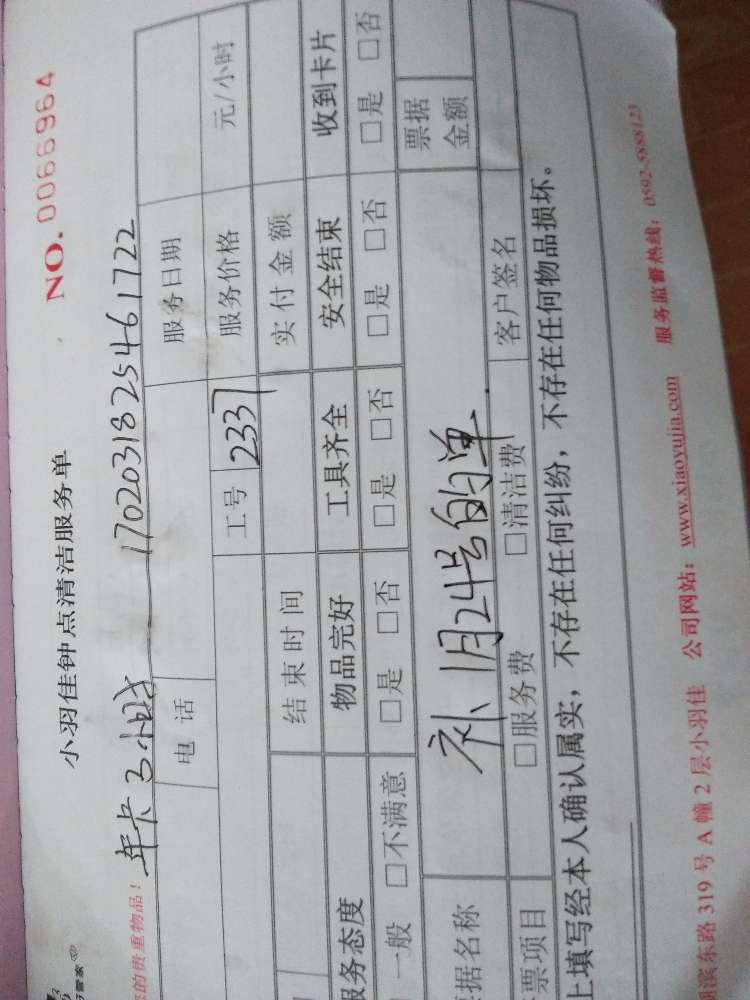 小羽佳钟点清洁服务单
NO. 0066964
的贵重物品!
年卡3小时 1702031825461722
电话 服务日期
工号 2337 服务价格 元/小时
结束时间 实付金额
服务态度 物品完好 工具齐全 安全结束 收到卡片
一般 □不满意 □是 □否 □是 □否 □是 □否 □是 □否
据名称 补1月24号的单. 票据金额
票项目 □服务费 □清洁费 客户签名
上填写经本人确认属实，不存在任何纠纷，不存在任何物品损坏。
滨东路319号A幢2层小羽佳 公司网站：www.xiaoyujia.com 服务监督热线：0592-5888123